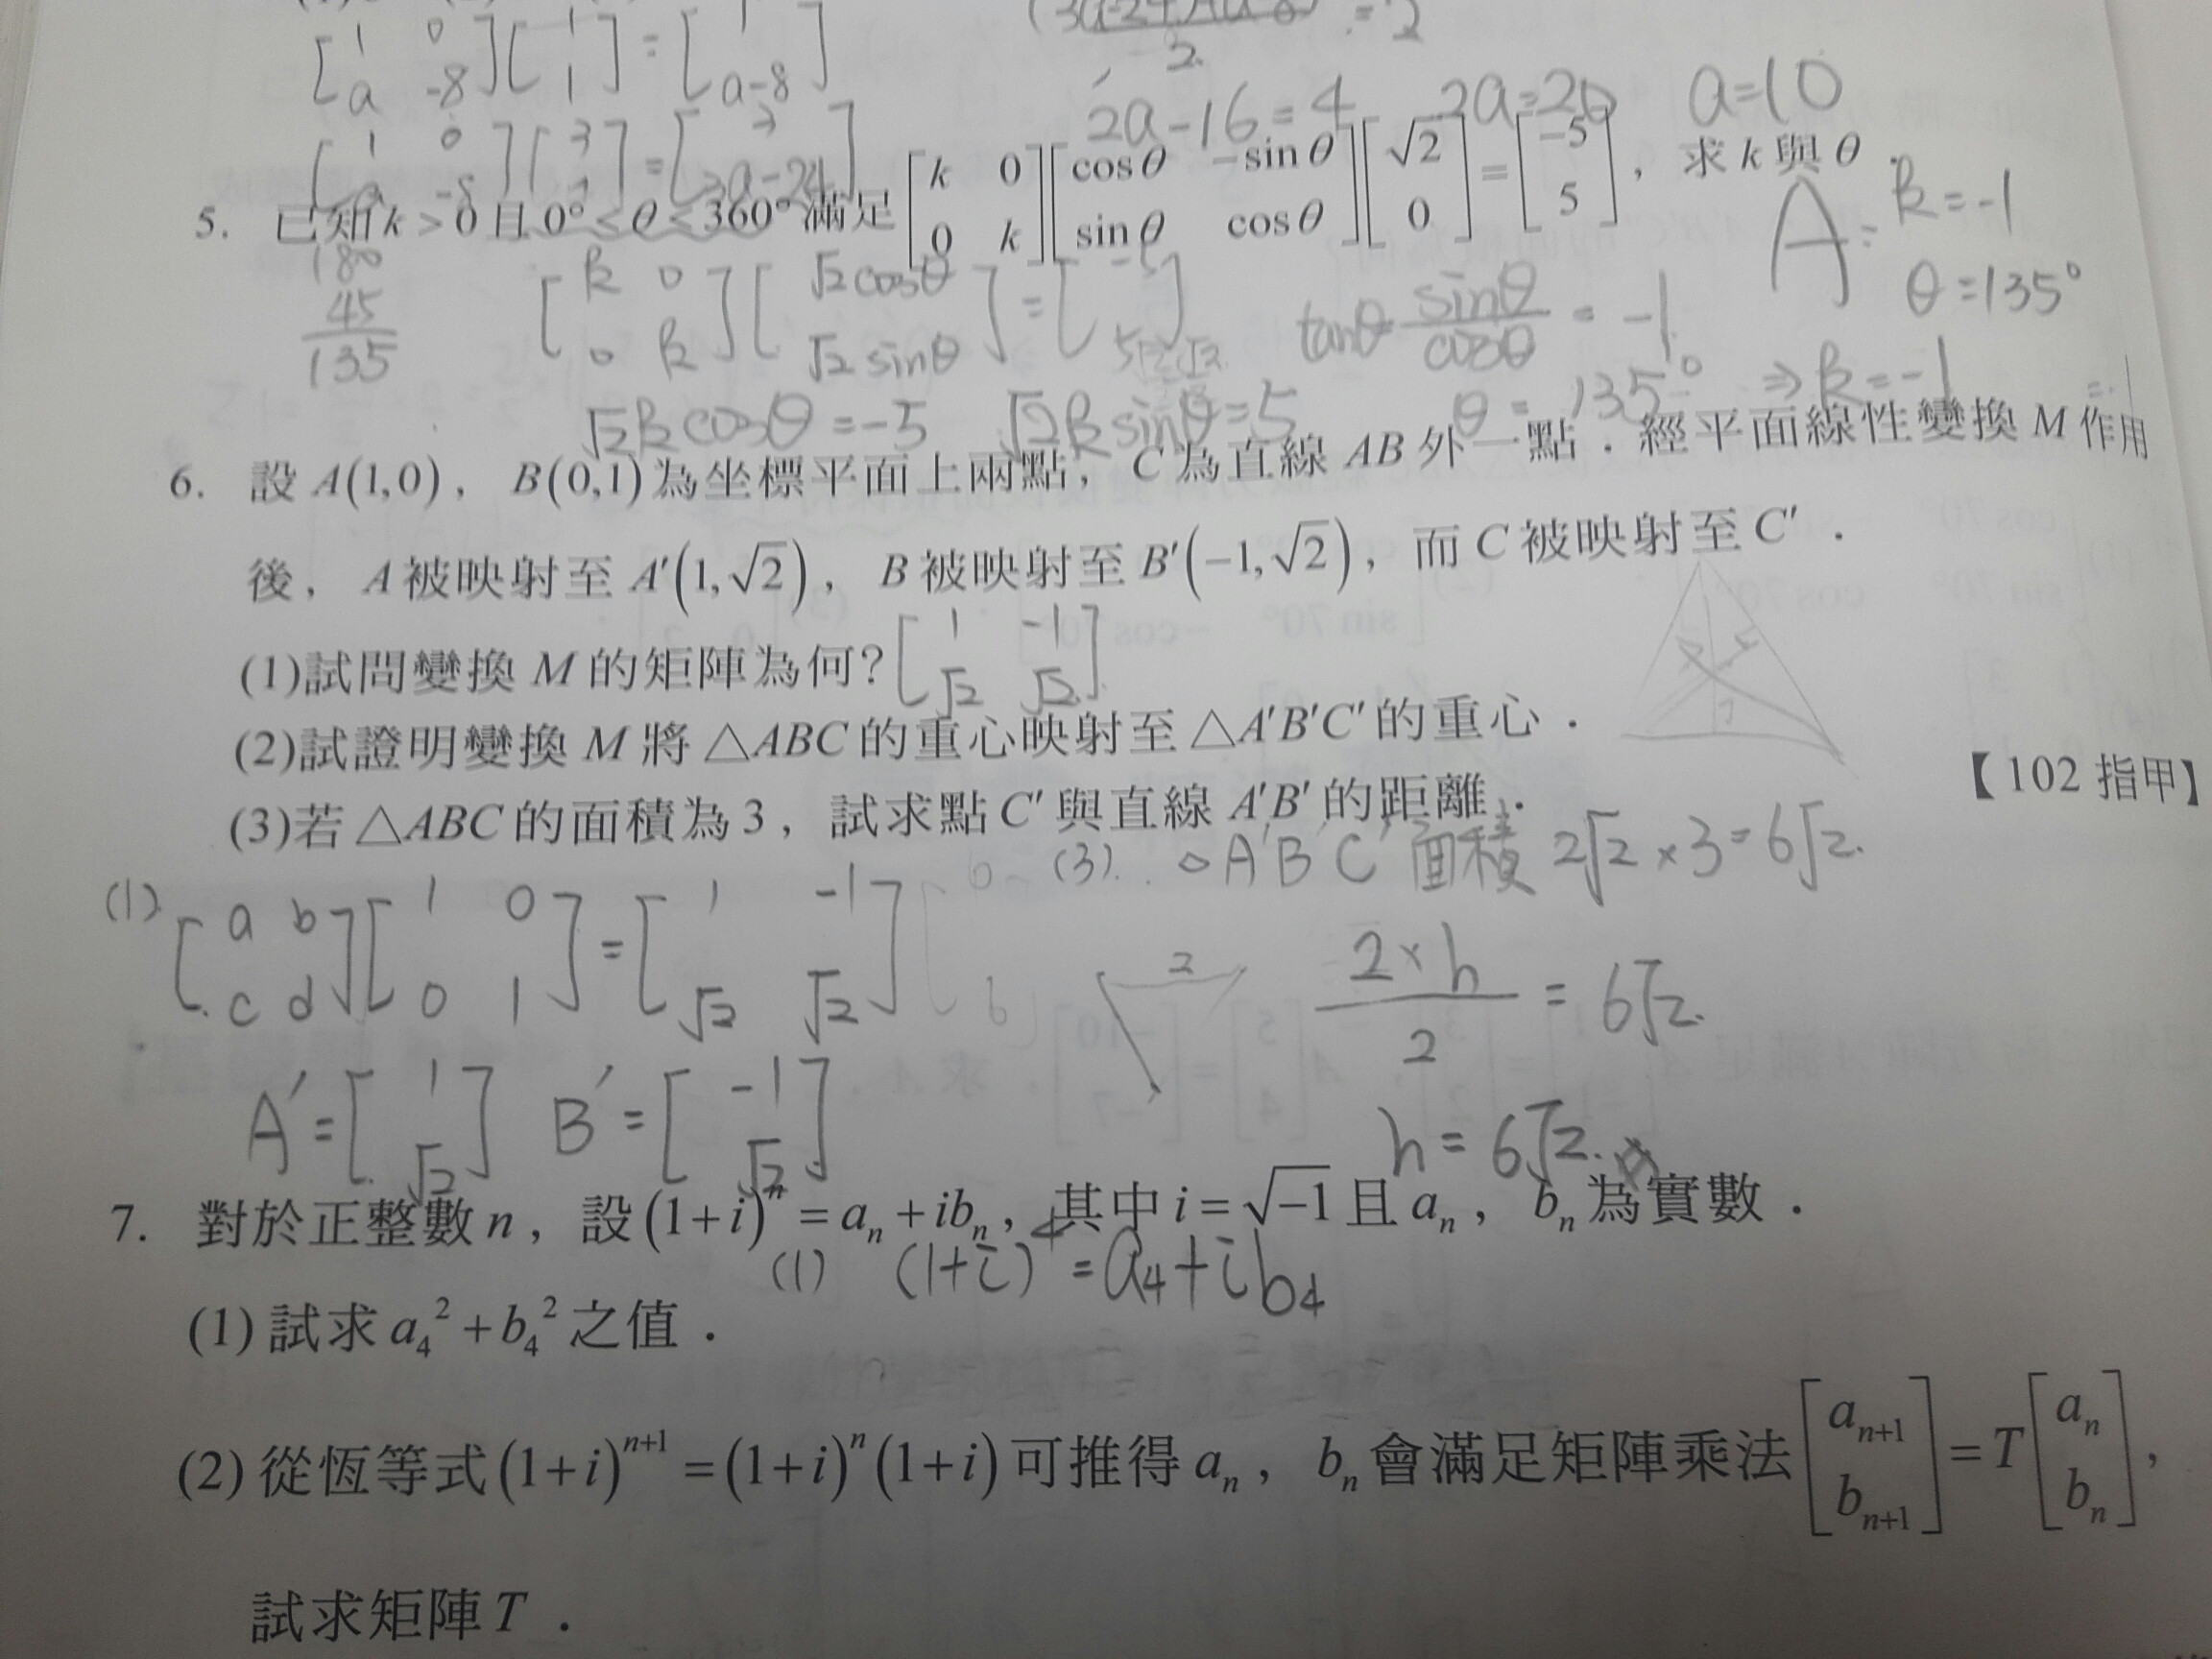 [1 0; a -8][1; 1] = [1; a-8]
2a-16=4 2a=20 a=10
5. 已知 k > 0 且 0° ≤ θ ≤ 360° 滿足 [k 0; 0 k][cosθ -sinθ; sinθ cosθ][√2; 0] = [-5; 5]，求 k 與 θ．
A: k=-1
θ=135°
180
45
135
[k 0; 0 k][√2cosθ; √2sinθ] =
tanθ = sinθ/cosθ = -1
√2kcosθ=-5 √2ksinθ=5 θ=135° ⇒ k=-1
6. 設 A(1,0)，B(0,1) 為坐標平面上兩點，C 為直線 AB 外一點．經平面線性變換 M 作用
後，A 被映射至 A′(1,√2)，B 被映射至 B′(-1,√2)，而 C 被映射至 C′．
(1)試問變換 M 的矩陣為何? [1 -1; √2 √2]
(2)試證明變換 M 將 △ABC 的重心映射至 △A′B′C′ 的重心．
【102 指甲】
(3)若 △ABC 的面積為 3，試求點 C′ 與直線 A′B′ 的距離．
(3). △A′B′C′ 面積 2√2×3=6√2.
(1) [a b; c d][1 0; 0 1] = [1 -1; √2 √2]
2
2×h/2 = 6√2.
A′=[1; √2] B′=[-1; √2]
h=6√2.
7. 對於正整數 n，設 (1+i)^n = a_n + ib_n，其中 i = √-1 且 a_n，b_n 為實數．
(1) (1+i)^4 = a4+ib4
(1) 試求 a_4^2 + b_4^2 之值．
(2) 從恆等式 (1+i)^{n+1} = (1+i)^n (1+i) 可推得 a_n，b_n 會滿足矩陣乘法 [a_{n+1}; b_{n+1}] = T[a_n; b_n]，
試求矩陣 T．